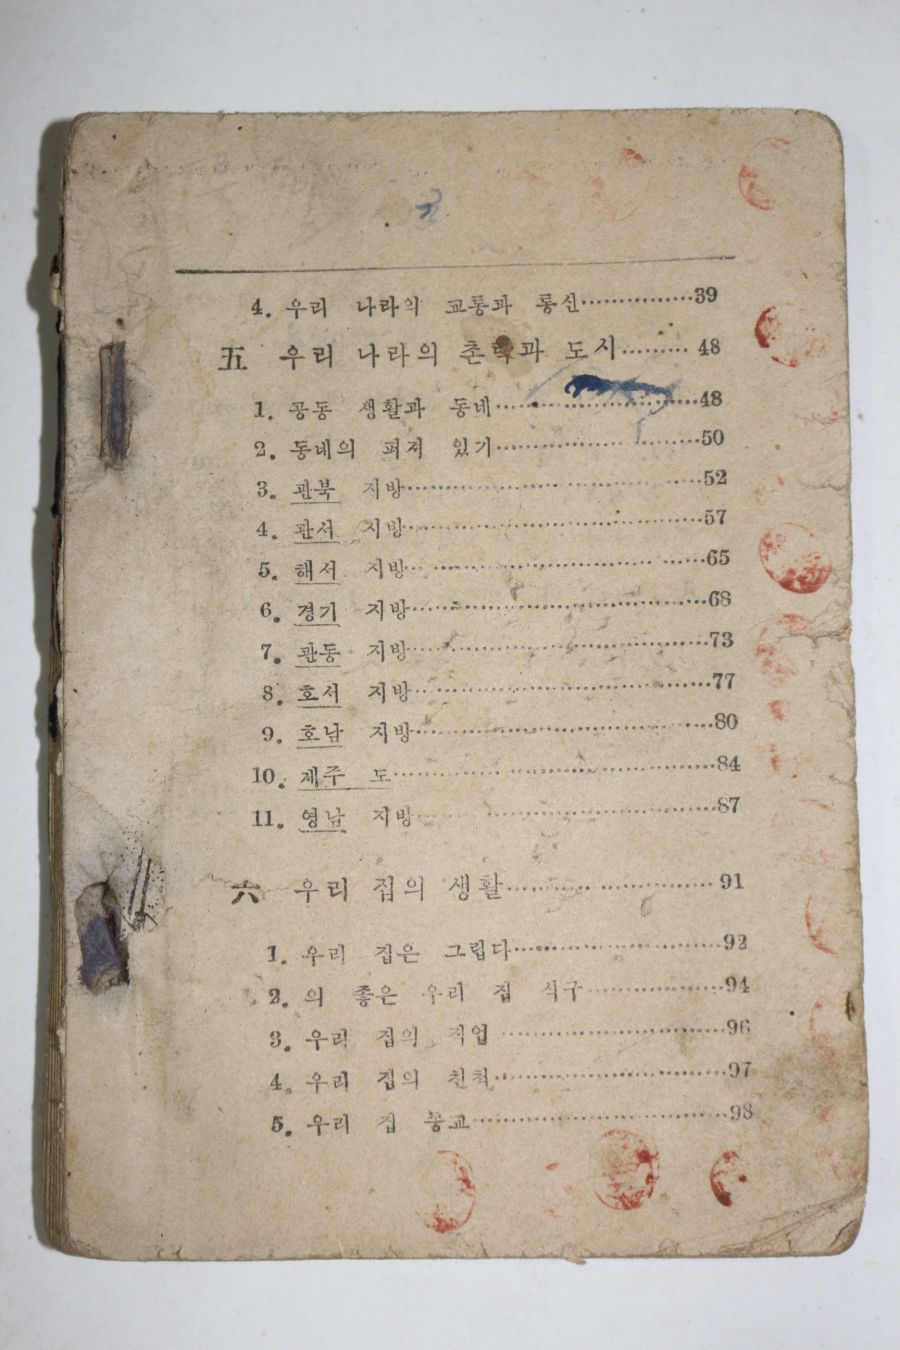 4. 우리 나라의 교통과 통신……………39
五 우리 나라의 촌락과 도시……… 48
1. 공동 생활과 동네……………………48
2. 동네의 퍼져 있기……………………50
3. 관북 지방……………………………52
4. 관서 지방……………………………57
5. 해서 지방……………………………65
6. 경기 지방……………………………68
7. 관동 지방……………………………73
8. 호서 지방……………………………77
9. 호남 지방……………………………80
10. 제주 도……………………………84
11. 영남 지방……………………………87
六 우리 집의 생활……………………91
1. 우리 집은 그립다……………………92
2. 의 좋은 우리 집 식구………………94
3. 우리 집의 직업………………………96
4. 우리 집의 친척………………………97
5. 우리 집 종교…………………………98